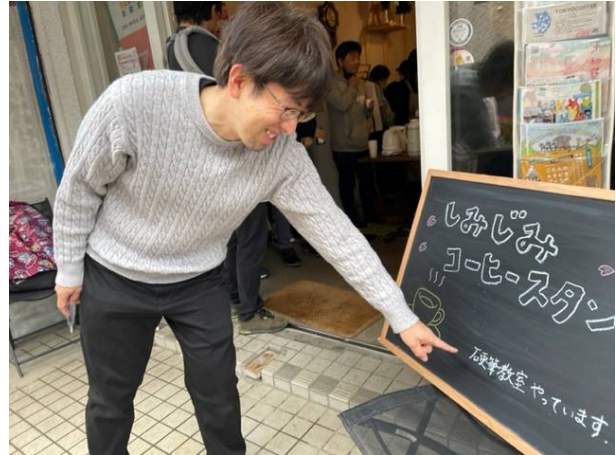 しみじみ
コーヒースタン
硬筆教室やっています.